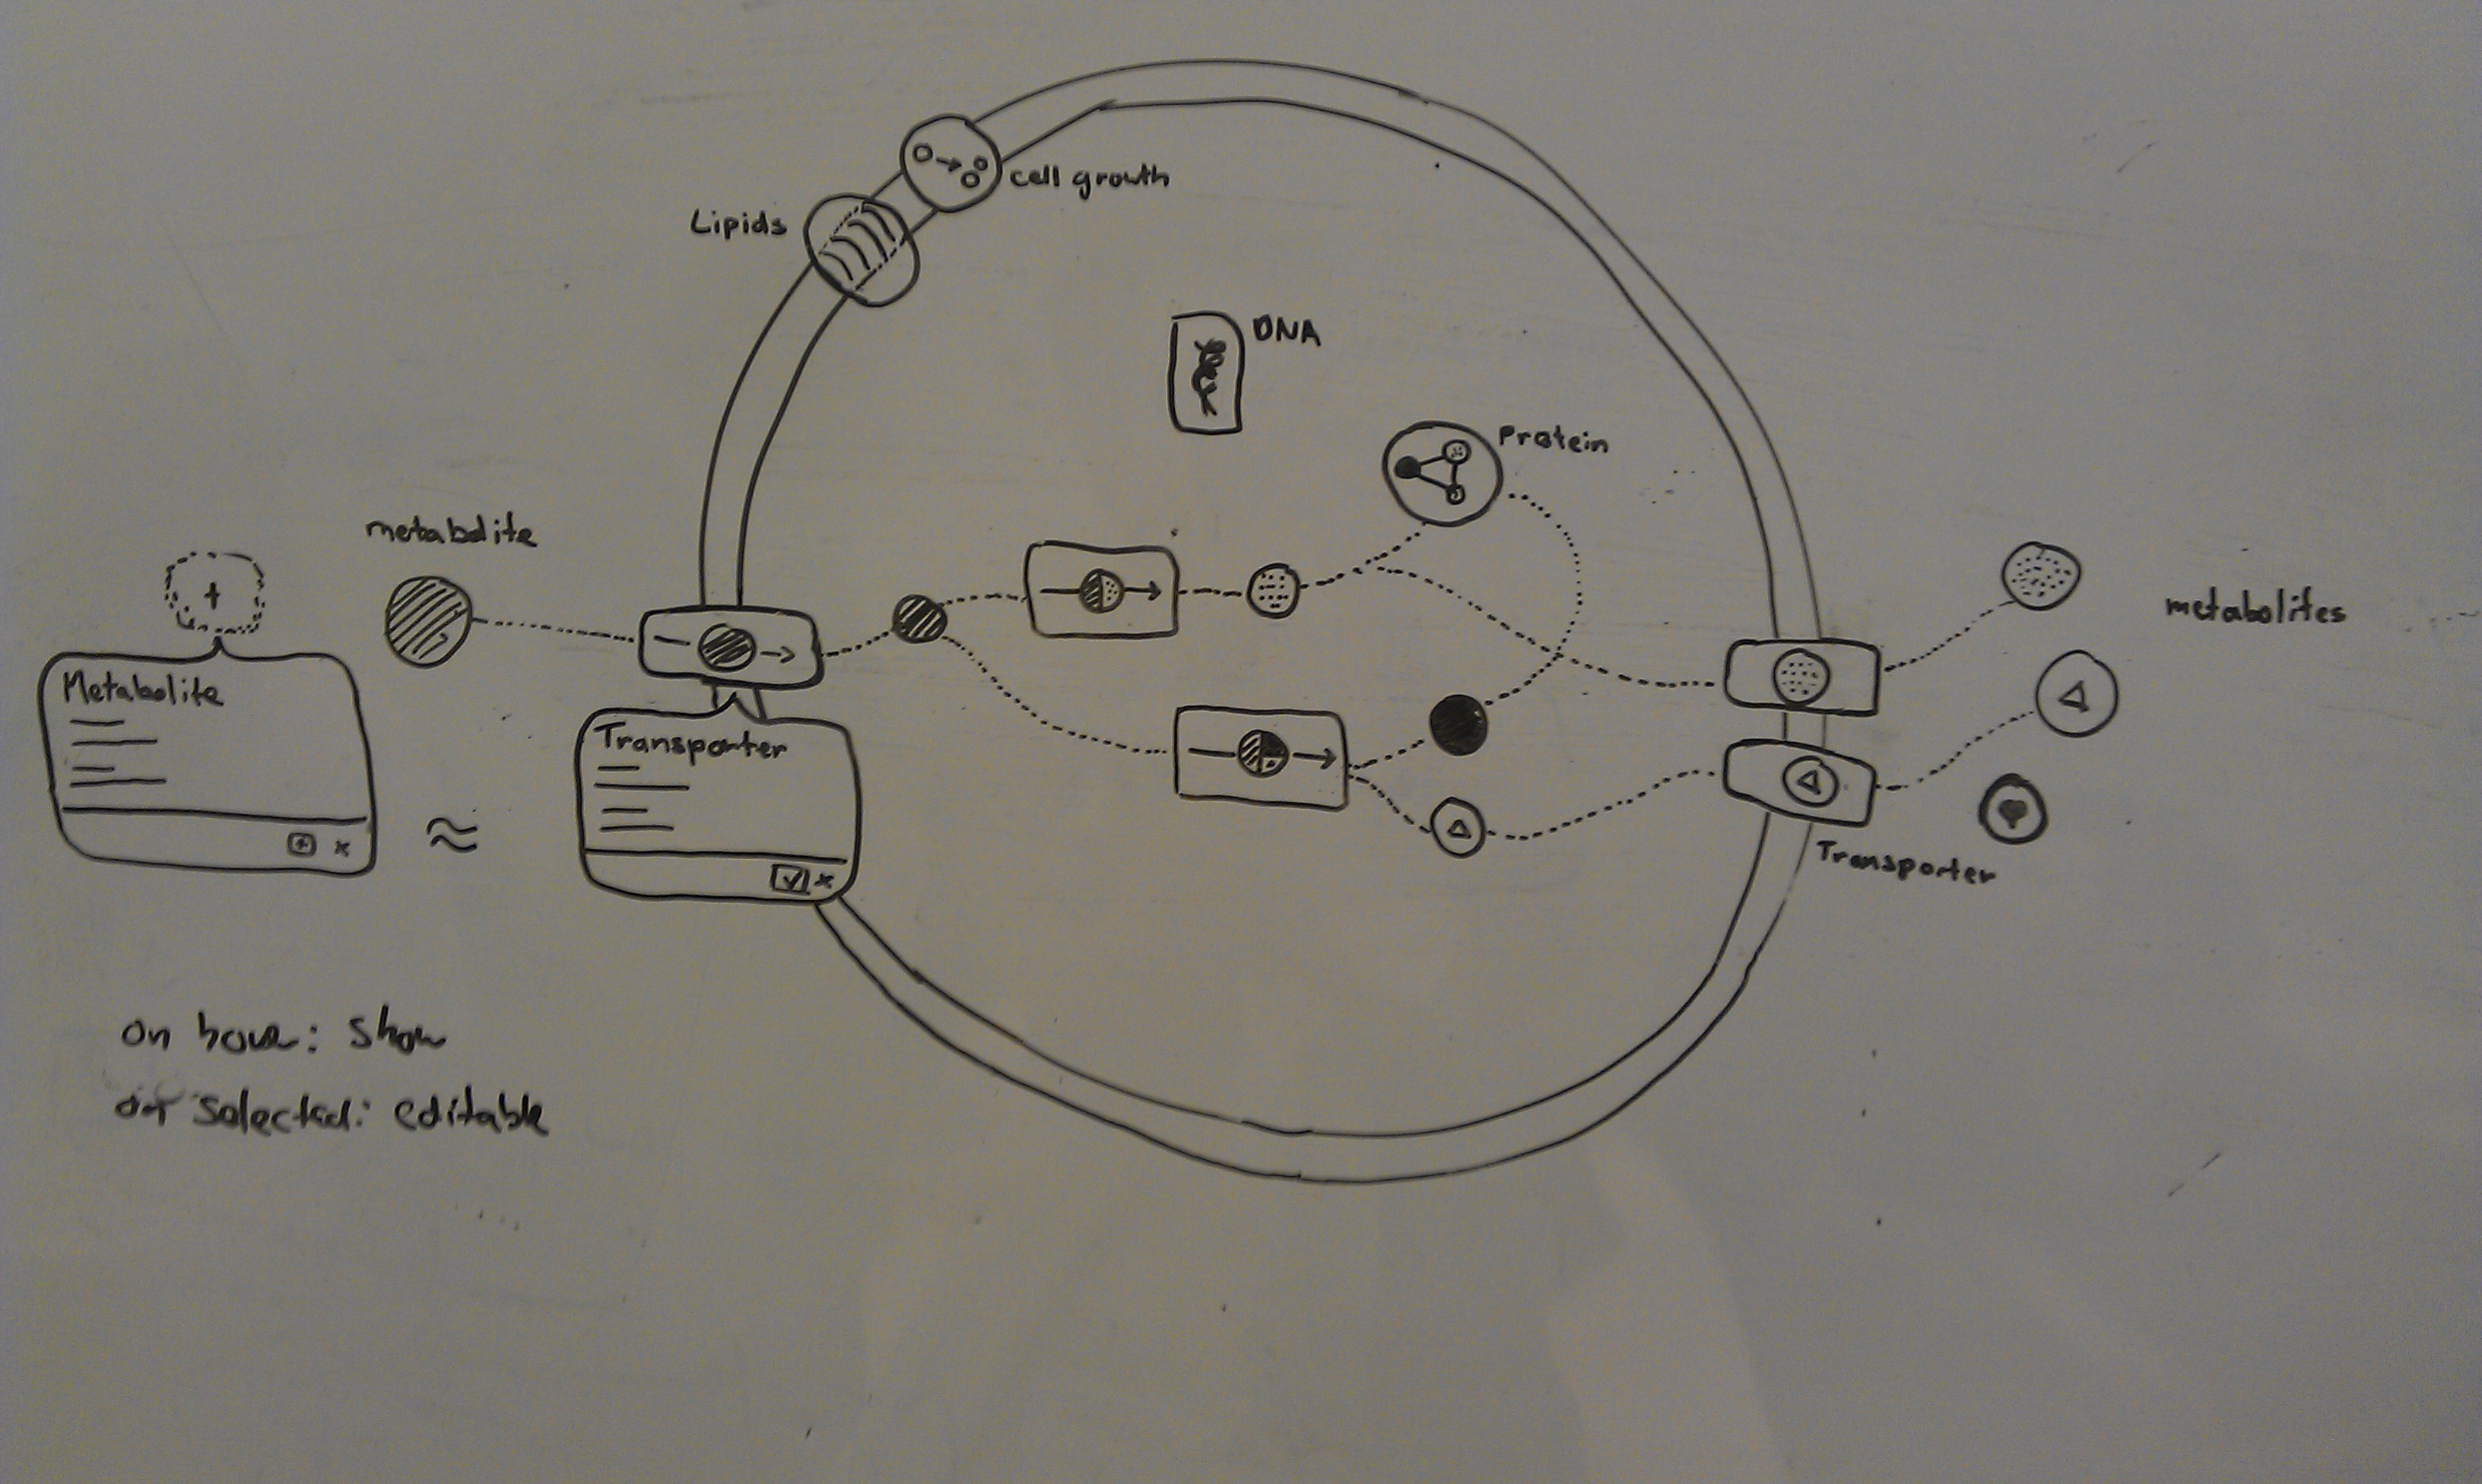 cell growth
Lipids
DNA
Protein
metabolite
+
metabolites
Metabolite
+ x
Transporter
✓ x
≈
Transporter
on hover: show
on selected: editable